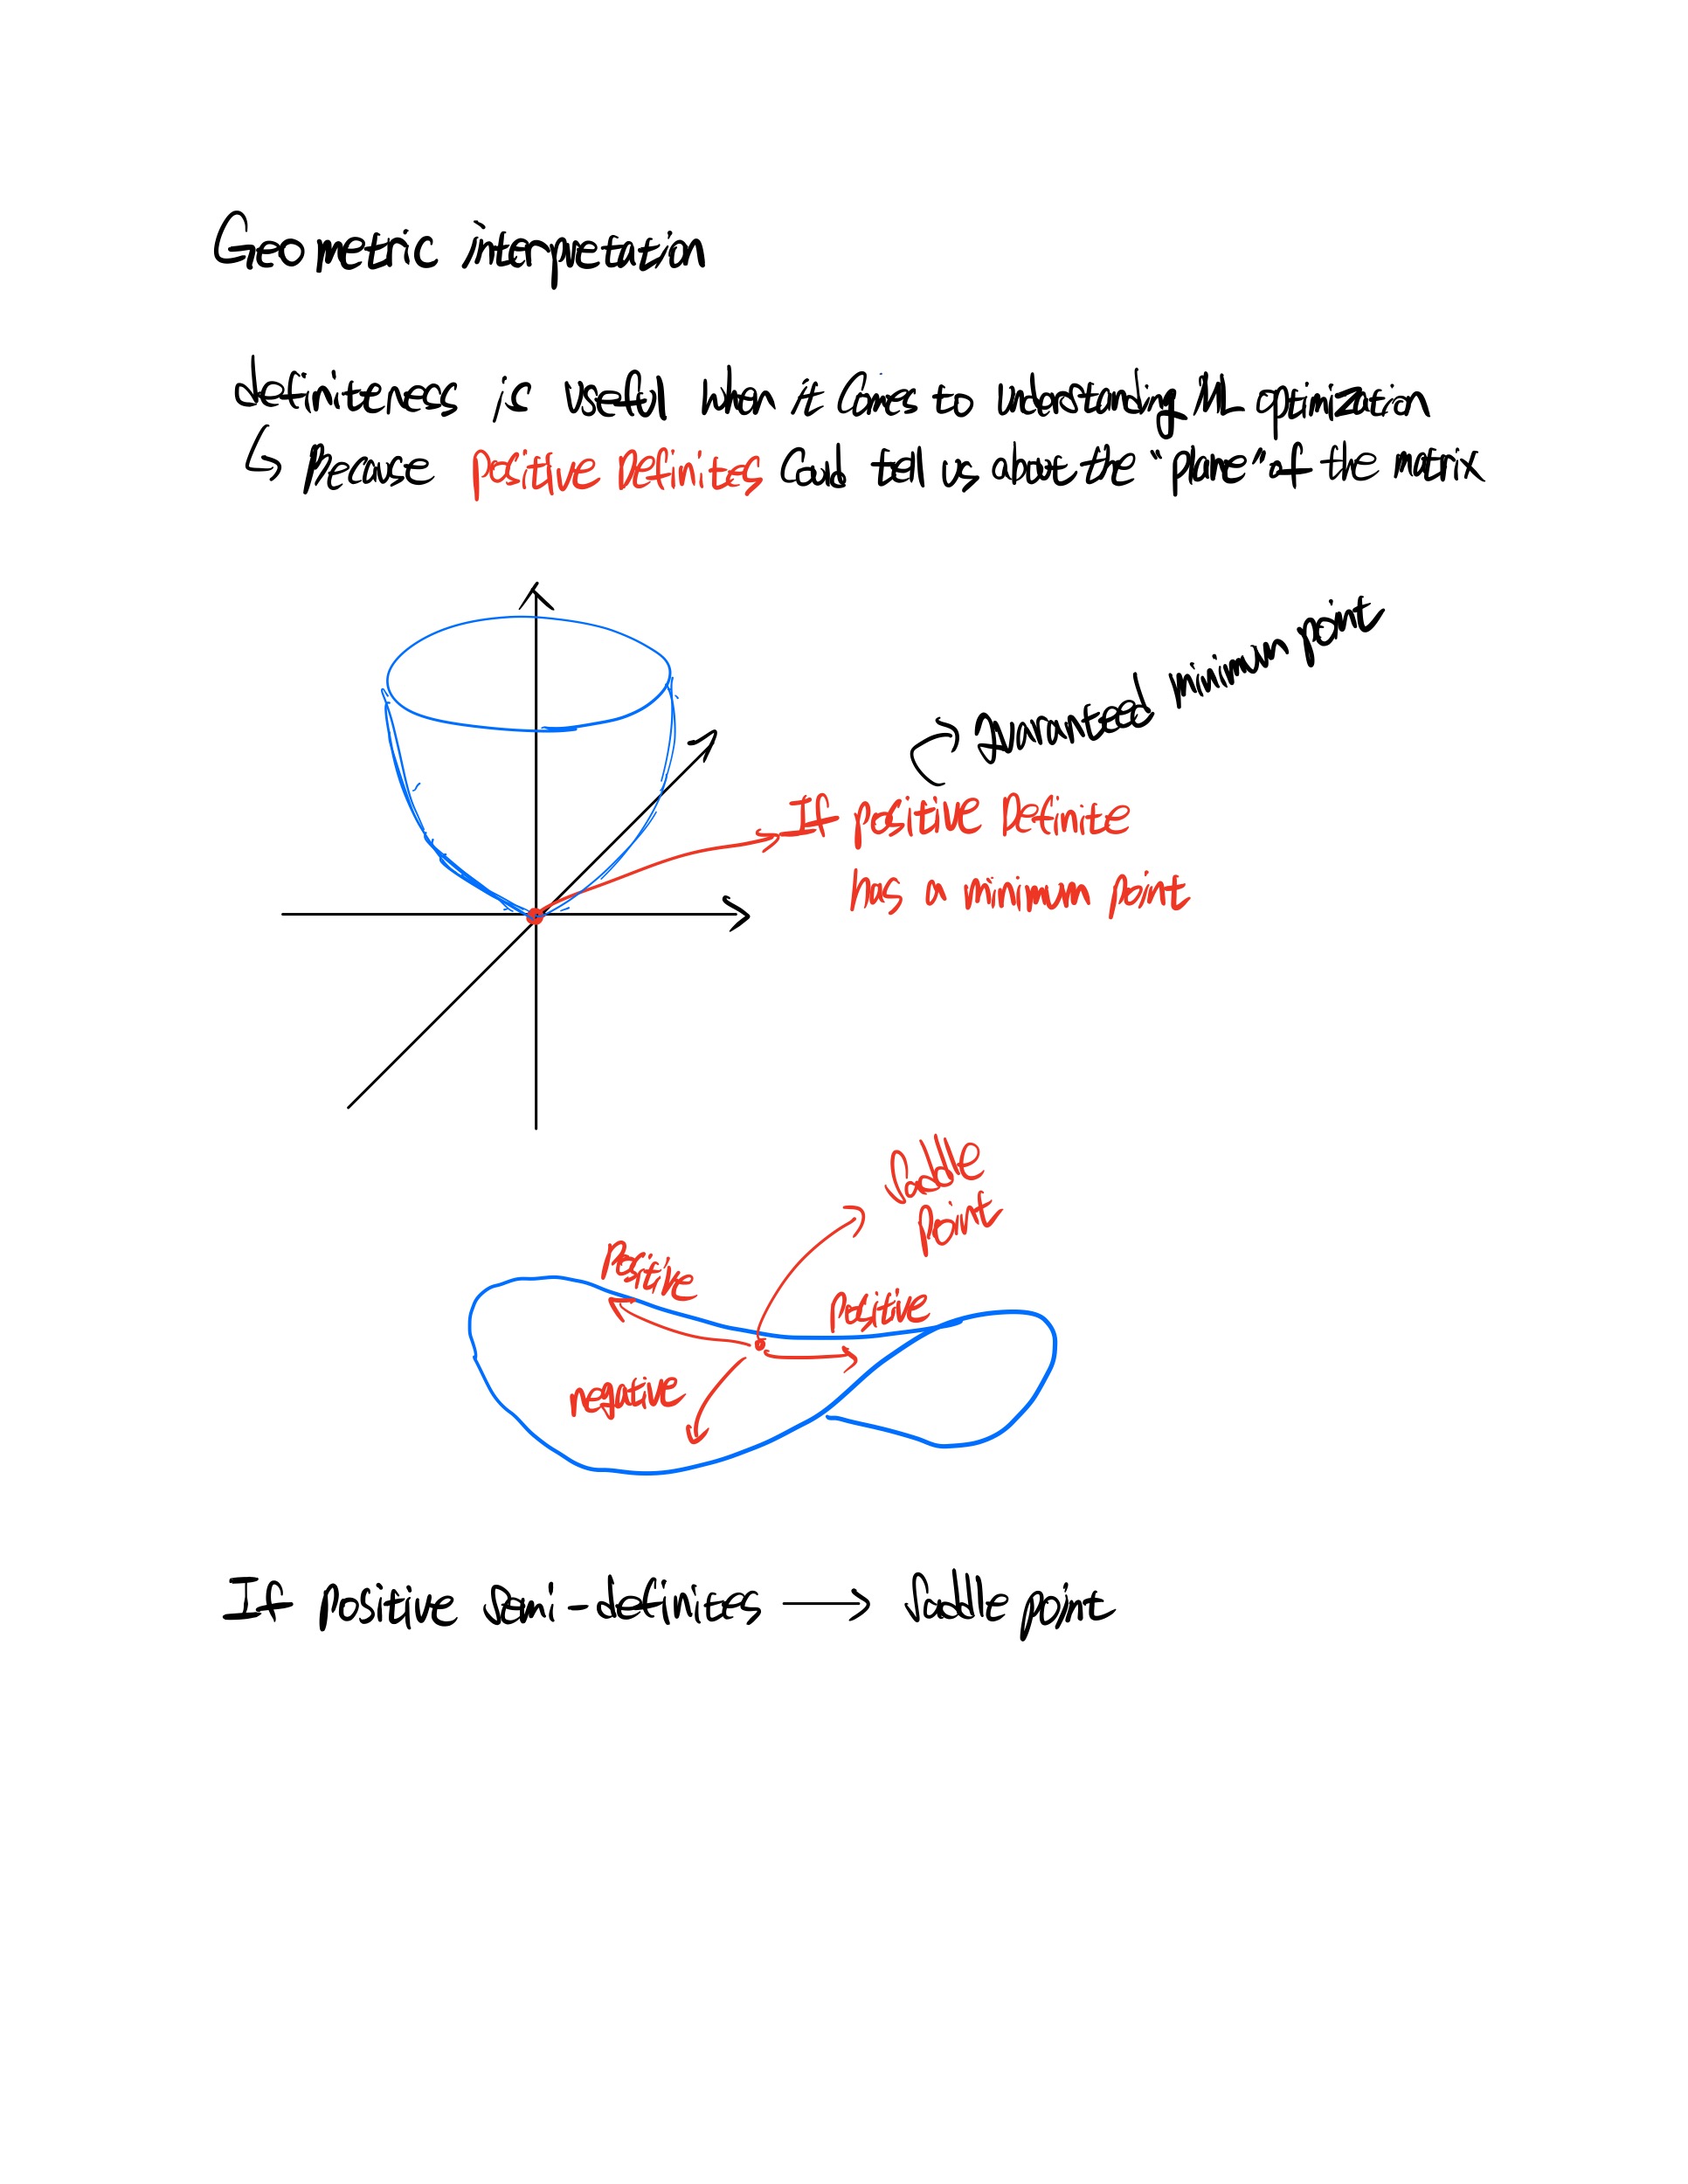 Geometric interpretation
definiteness is useful when it comes to understanding ML optimization
↳ Because positive Definites could tell us about the "plane" of the matrix
Guaranteed minimum point
If positive Definite
has a minimum point
Saddle
point
Positive
Positive
negative
If positive semi-definites → Saddle point